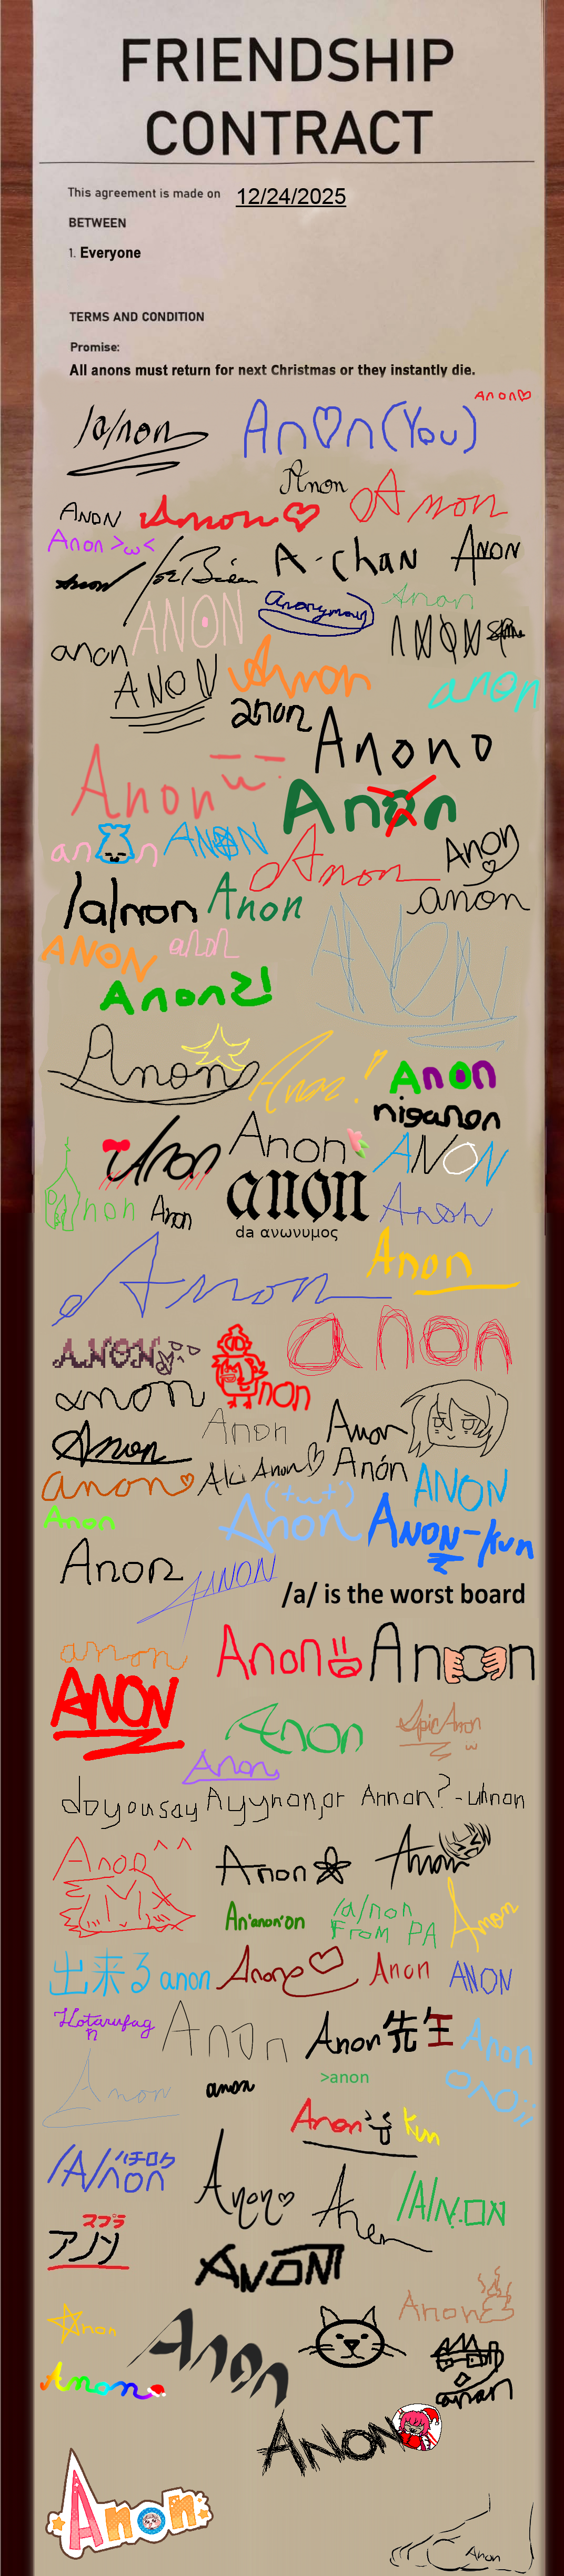 FRIENDSHIP
CONTRACT
This agreement is made on 12/24/2025
BETWEEN
1. Everyone
TERMS AND CONDITION
Promise:
All anons must return for next Christmas or they instantly die.
Anon♡
/a/non
An♡n(You)
Anon
ANON
Anon♡
Anon
Anon >ω<
Anon
Joe Biden
A-chan
ANON
ANON
Anonymous
Anon
anon
ANON
Anon
anon
anon
Anono
Anon
Anon
an n
ANON
Anon
Anon
/a/non
Anon
anon
ANON
anon
ANON
Anon2!
Anon
Anon!
Anon
niganon
Anon
Anon
ANON
non
Anon
anon
Anon
da ανωνυμος
Anon
Anon
ANON
non
anon
anon
Anon
Anon
Anon
anon♡
Aki Anon♡
Anón
ANON
Anon
Anon
ANON-kun
Anon
ANON
/a/ is the worst board
anon
Anon
Anon
ANON
Anon
Epic Anon
Anon
do you say Ayynon, or Annon? - uhnon
Anon^^
Anon
Anon
An'anon'on
/a/non
From PA
Anon
出来る anon
Anon
Anon
ANON
Hotarufag
Anon
Anon先生
Anon
Anon
anon
>anon
Anon
kun
/A/non
ハチロク
Anon♡
Anon
/A/NON
マプラ
アノン
ANON
Anon
Anon
Anon
Anon
anan
ANON
Anon
Anon